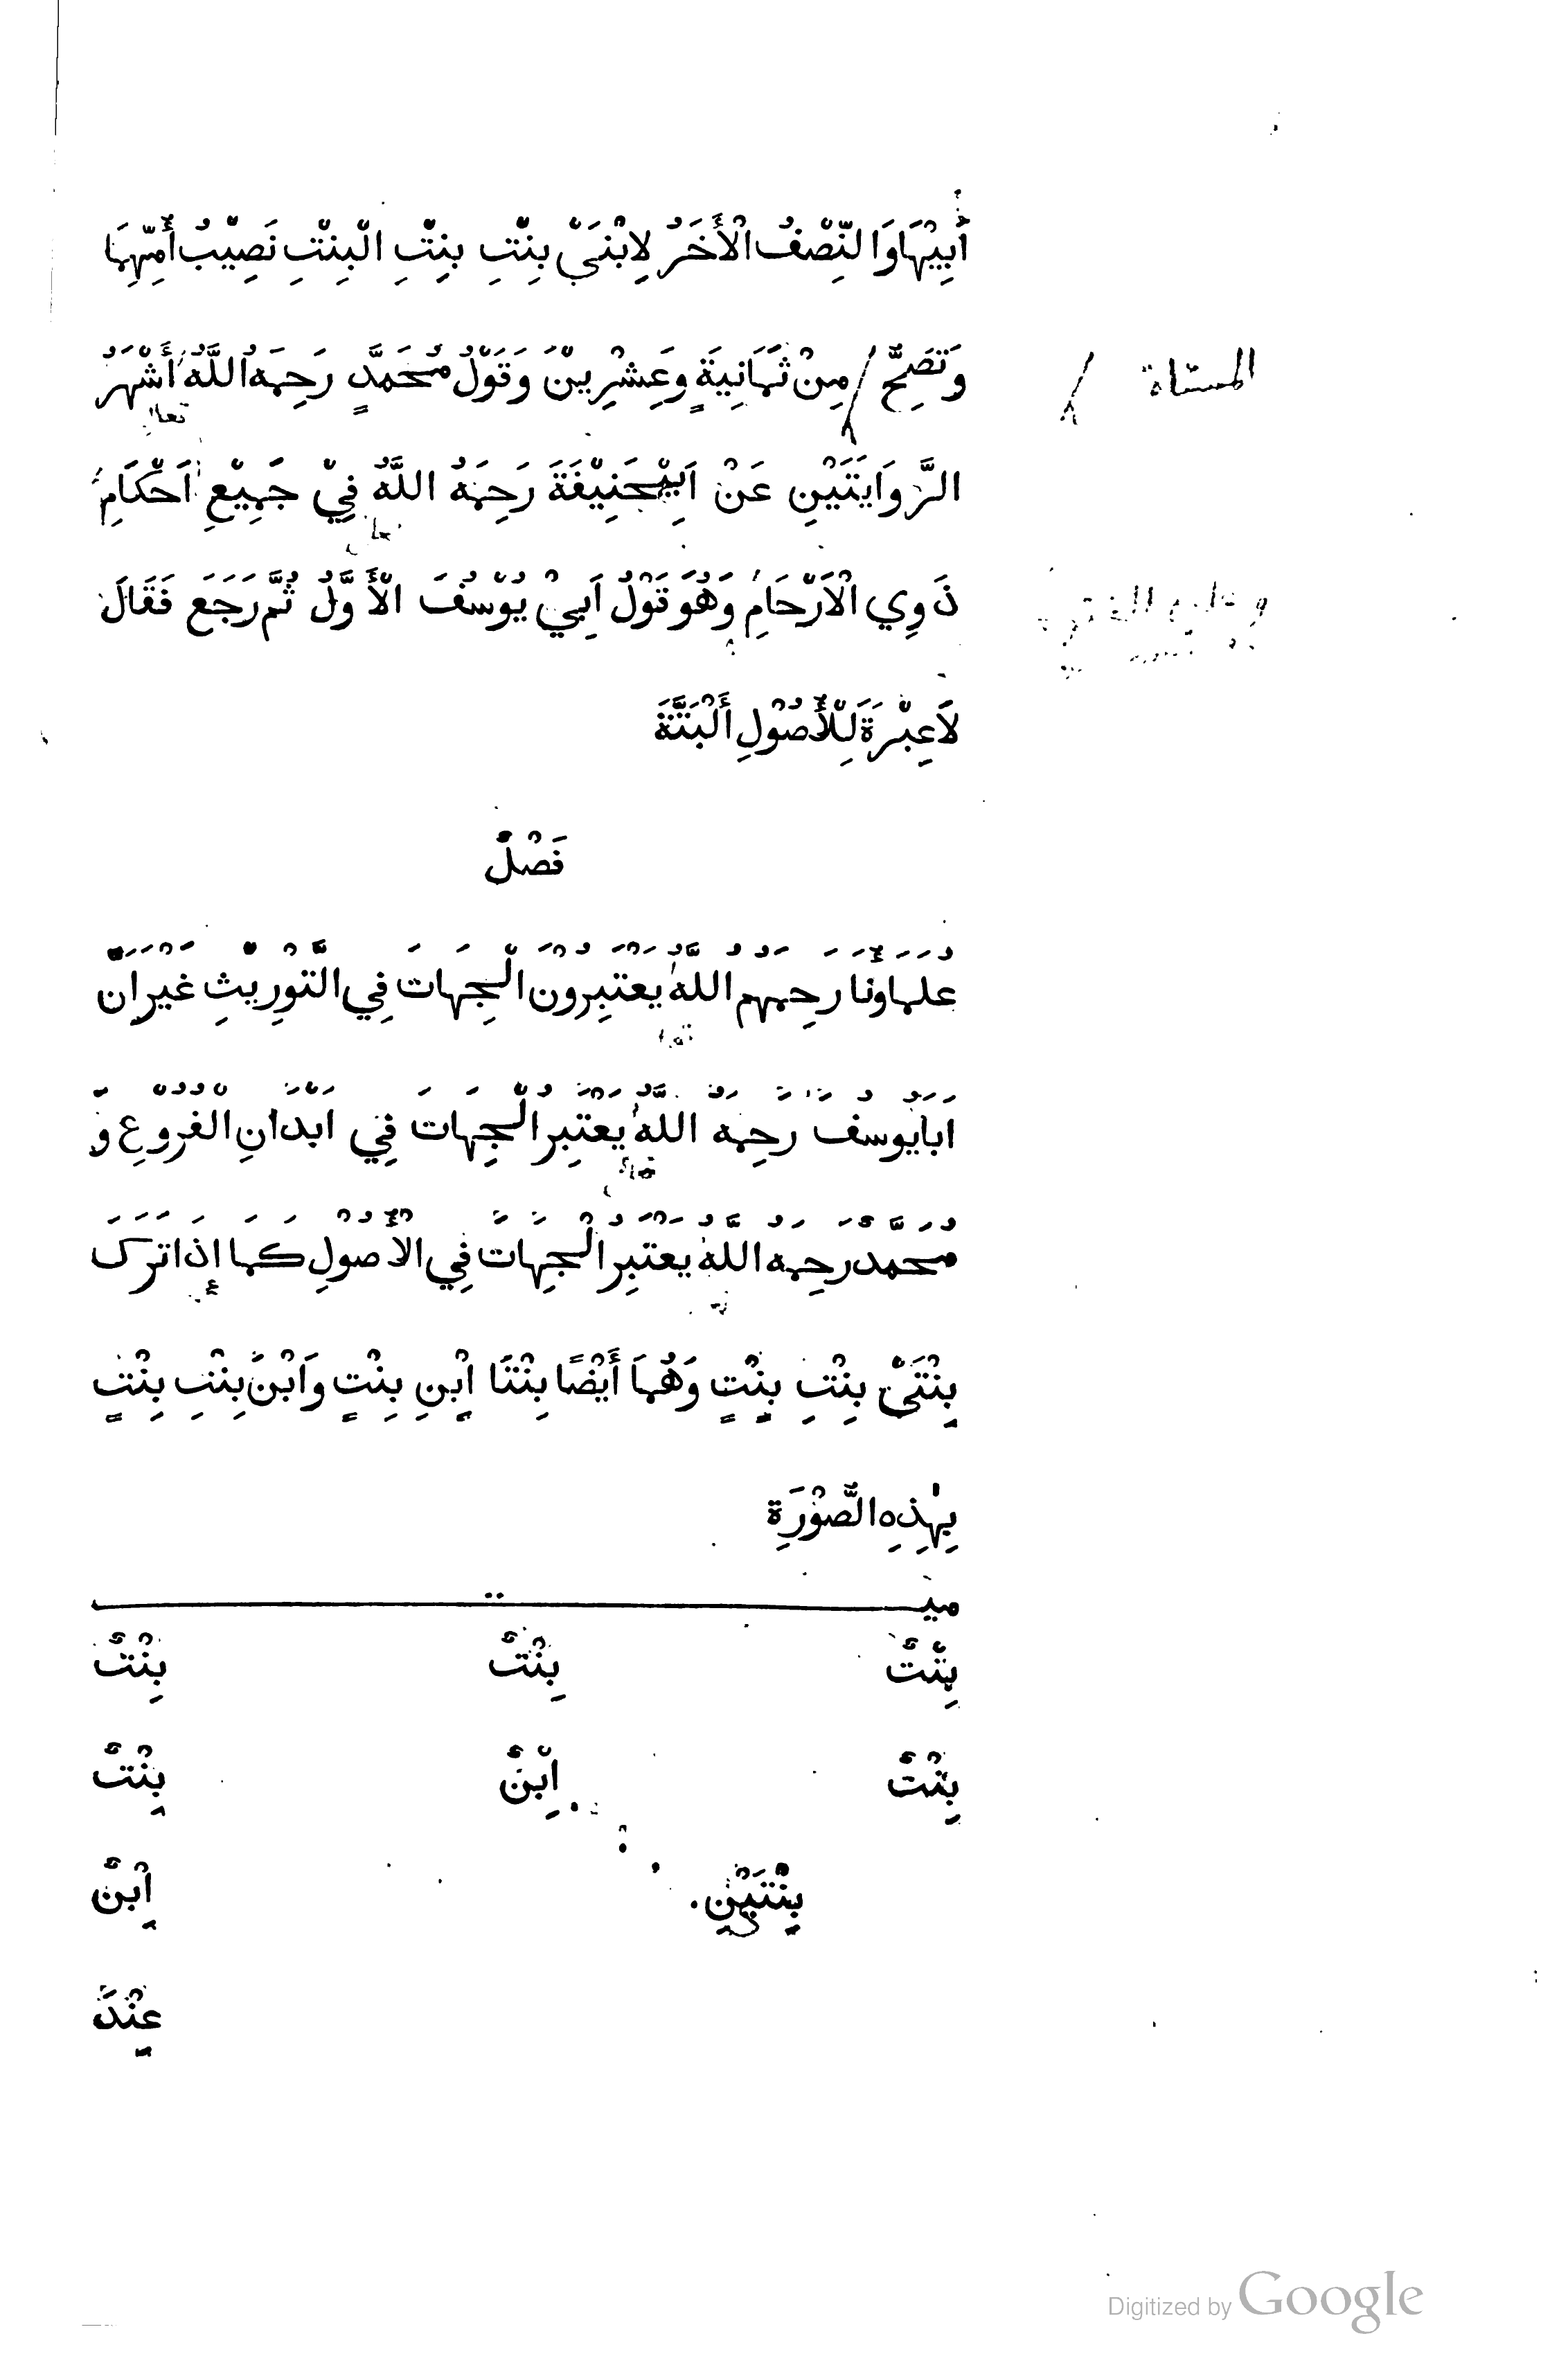 أَبِيْهَا وَالنِّصْفُ الْأَخَرُ لِابْنَيْ بِنْتِ بِنْتِ الْبِنْتِ نَصِيْبُ أُمِّهِمَا
وَتَصِحُّ / مِنْ ثَمَانِيَةٍ وَعِشْرِيْنَ وَقَوْلُ مُحَمَّدٍ رَحِمَهُ اللَّهُ أَشْهَرُ
المسئلة /
تعالى
الرَّوَايَتَيْنِ عَنْ اَبِيْحَنِيْفَةَ رَحِمَهُ اللَّهُ فِيْ جَمِيْعِ اَحْكَامِ
ذَوِي الْاَرْحَامِ وَهُوَ قَوْلُ اَبِيْ يُوْسُفَ الْأَوَّلُ ثُمَّ رَجَعَ فَقَالَ
لَاعِبْرَةَ لِلْأُصُوْلِ أَلْبَتَّةَ
فَصْلٌ
عُلَمَاؤُنَا رَحِمَهُمُ اللَّهُ يَعْتَبِرُوْنَ الْجِهَاتَ فِي التَّوْرِيْثِ غَيْرَ اَنَّ
اَبَا يُوسُفَ رَحِمَهُ اللَّهُ يَعْتَبِرُ الْجِهَاتَ فِي اَبْدَانِ الْفُرُوْعِ وَ
مُحَمَّدٌ رَحِمَهُ اللَّهُ يَعْتَبِرُ الْجِهَاتَ فِي الْاُصُوْلِ كَمَا إِذَا تَرَكَ
بِنْتَيْ بِنْتِ بِنْتٍ وَهُمَا أَيْضًا بِنْتَا اِبْنِ بِنْتٍ وَابْنَ بِنْتِ بِنْتٍ
بِهٰذِهِ الصُّوْرَةِ
ميت
بِنْتٌ بِنْتٌ بِنْتٌ
بِنْتٌ اِبْنٌ بِنْتٌ
بِنْتَيْنِ . اِبْنٌ
عِنْدَ
Digitized by Google